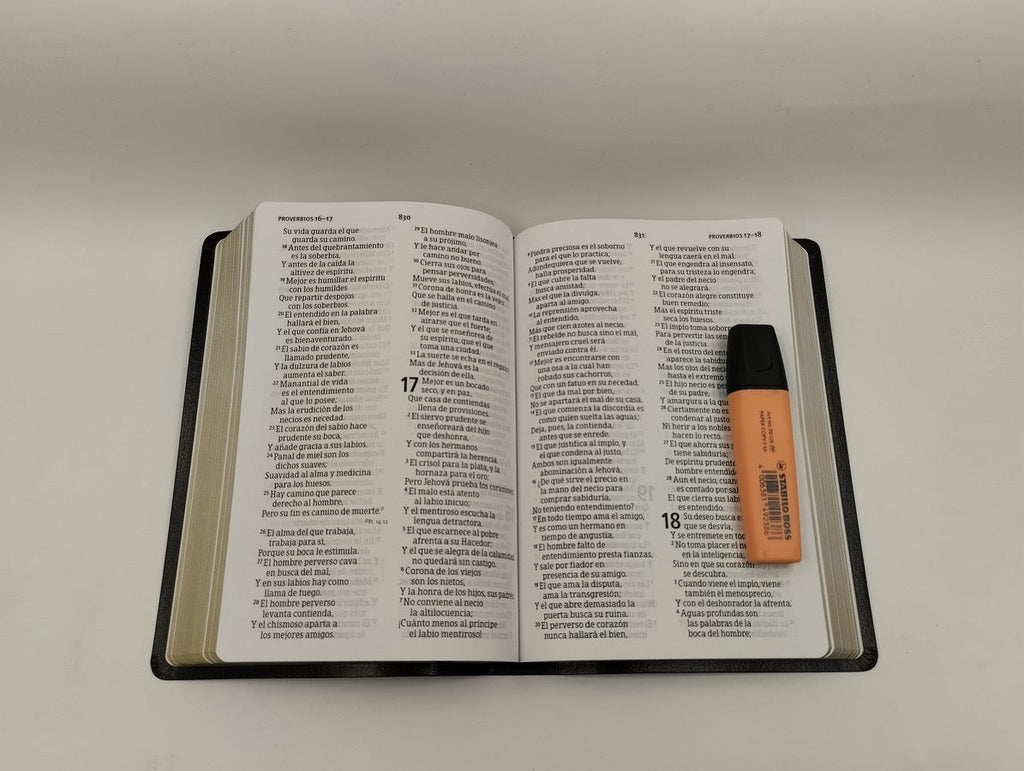 PROVERBIOS 16–17
830
Su vida guarda el que
guarda su camino.
18 Antes del quebrantamiento
es la soberbia,
Y antes de la caída la
altivez de espíritu.
19 Mejor es humillar el espíritu
con los humildes
Que repartir despojos
con los soberbios.
20 El entendido en la palabra
hallará el bien,
Y el que confía en Jehová
es bienaventurado.
21 El sabio de corazón es
llamado prudente,
Y la dulzura de labios
aumenta el saber.
22 Manantial de vida
es el entendimiento
al que lo posee;
Mas la erudición de los
necios es necedad.
23 El corazón del sabio hace
prudente su boca,
Y añade gracia a sus labios.
24 Panal de miel son los
dichos suaves;
Suavidad al alma y medicina
para los huesos.
25 Hay camino que parece
derecho al hombre,
Pero su fin es camino de muerte.
Pr. 14:12
26 El alma del que trabaja,
trabaja para sí,
Porque su boca le estimula.
27 El hombre perverso cava
en busca del mal,
Y en sus labios hay como
llama de fuego.
28 El hombre perverso
levanta contienda,
Y el chismoso aparta a
los mejores amigos.
29 El hombre malo lisonjea
a su prójimo,
Y le hace andar por
camino no bueno.
30 Cierra sus ojos para
pensar perversidades;
Mueve sus labios, efectúa el mal.
31 Corona de honra es la vejez
Que se halla en el camino
de justicia.
32 Mejor es el que tarda en
airarse que el fuerte;
Y el que se enseñorea de
su espíritu, que el que
toma una ciudad.
33 La suerte se echa en el regazo;
Mas de Jehová es la
decisión de ella.
17 Mejor es un bocado
seco, y en paz,
Que casa de contiendas
llena de provisiones.
2 El siervo prudente se
enseñoreará del hijo
que deshonra,
Y con los hermanos
compartirá la herencia.
3 El crisol para la plata, y la
hornaza para el oro;
Pero Jehová prueba los corazones.
4 El malo está atento
al labio inicuo;
Y el mentiroso escucha la
lengua detractora.
5 El que escarnece al pobre
afrenta a su Hacedor;
Y el que se alegra de la calamidad
no quedará sin castigo.
6 Corona de los viejos
son los nietos,
Y la honra de los hijos, sus padres.
7 No conviene al necio
la altilocuencia;
¡Cuánto menos al príncipe
el labio mentiroso!
831
PROVERBIOS 17–18
8 Piedra preciosa es el soborno
para el que lo practica;
Adondequiera que se vuelve,
halla prosperidad.
9 El que cubre la falta
busca amistad;
Mas el que la divulga,
aparta al amigo.
10 La reprensión aprovecha
al entendido,
Más que cien azotes al necio.
11 El rebelde no busca sino el mal,
Y mensajero cruel será
enviado contra él.
12 Mejor es encontrarse con
una osa a la cual han
robado sus cachorros,
Que con un fatuo en su necedad.
13 El que da mal por bien,
No se apartará el mal de su casa.
14 El que comienza la discordia es
como quien suelta las aguas;
Deja, pues, la contienda,
antes que se enrede.
15 El que justifica al impío, y
el que condena al justo,
Ambos son igualmente
abominación a Jehová.
16 ¿De qué sirve el precio en
la mano del necio para
comprar sabiduría,
No teniendo entendimiento?
17 En todo tiempo ama el amigo,
Y es como un hermano en
tiempo de angustia.
18 El hombre falto de
entendimiento presta fianzas,
Y sale por fiador en
presencia de su amigo.
19 El que ama la disputa,
ama la transgresión;
Y el que abre demasiado la
puerta busca su ruina.
20 El perverso de corazón
nunca hallará el bien,
Y el que revuelve con su
lengua caerá en el mal.
21 El que engendra al insensato,
para su tristeza lo engendra;
Y el padre del necio
no se alegrará.
22 El corazón alegre constituye
buen remedio;
Mas el espíritu triste
seca los huesos.
23 El impío toma sobor
Para pervertir las sen
de la justicia.
24 En el rostro del ent
aparece la sabidur
Mas los ojos del neci
hasta el extremo
25 El hijo necio es pes
de su padre,
Y amargura a la qu
26 Ciertamente no es
condenar al justo
Ni herir a los nobles
hacen lo recto.
27 El que ahorra sus
tiene sabiduría;
De espíritu prudent
hombre entendid
28 Aun el necio, cuan
es contado por sa
El que cierra sus lab
es entendido.
18 Su deseo busca e
que se desvía,
Y se entremete en to
2 No toma placer el n
en la inteligencia,
Sino en que su corazón
se descubra.
3 Cuando viene el impío, viene
también el menosprecio,
Y con el deshonrador la afrenta.
4 Aguas profundas son
las palabras de la
boca del hombre;
STABILO BOSS
4 006381 492386